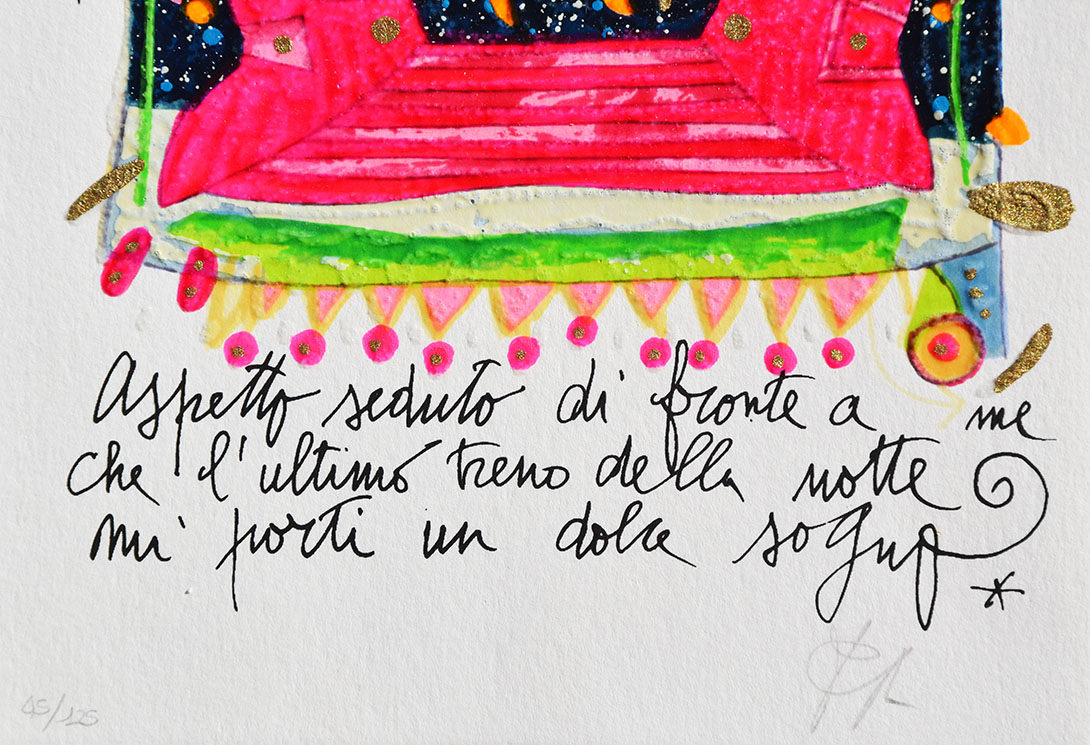 Aspetto seduto di fronte a me
che l'ultimo treno della notte
mi porti un dolce sogno
45/125